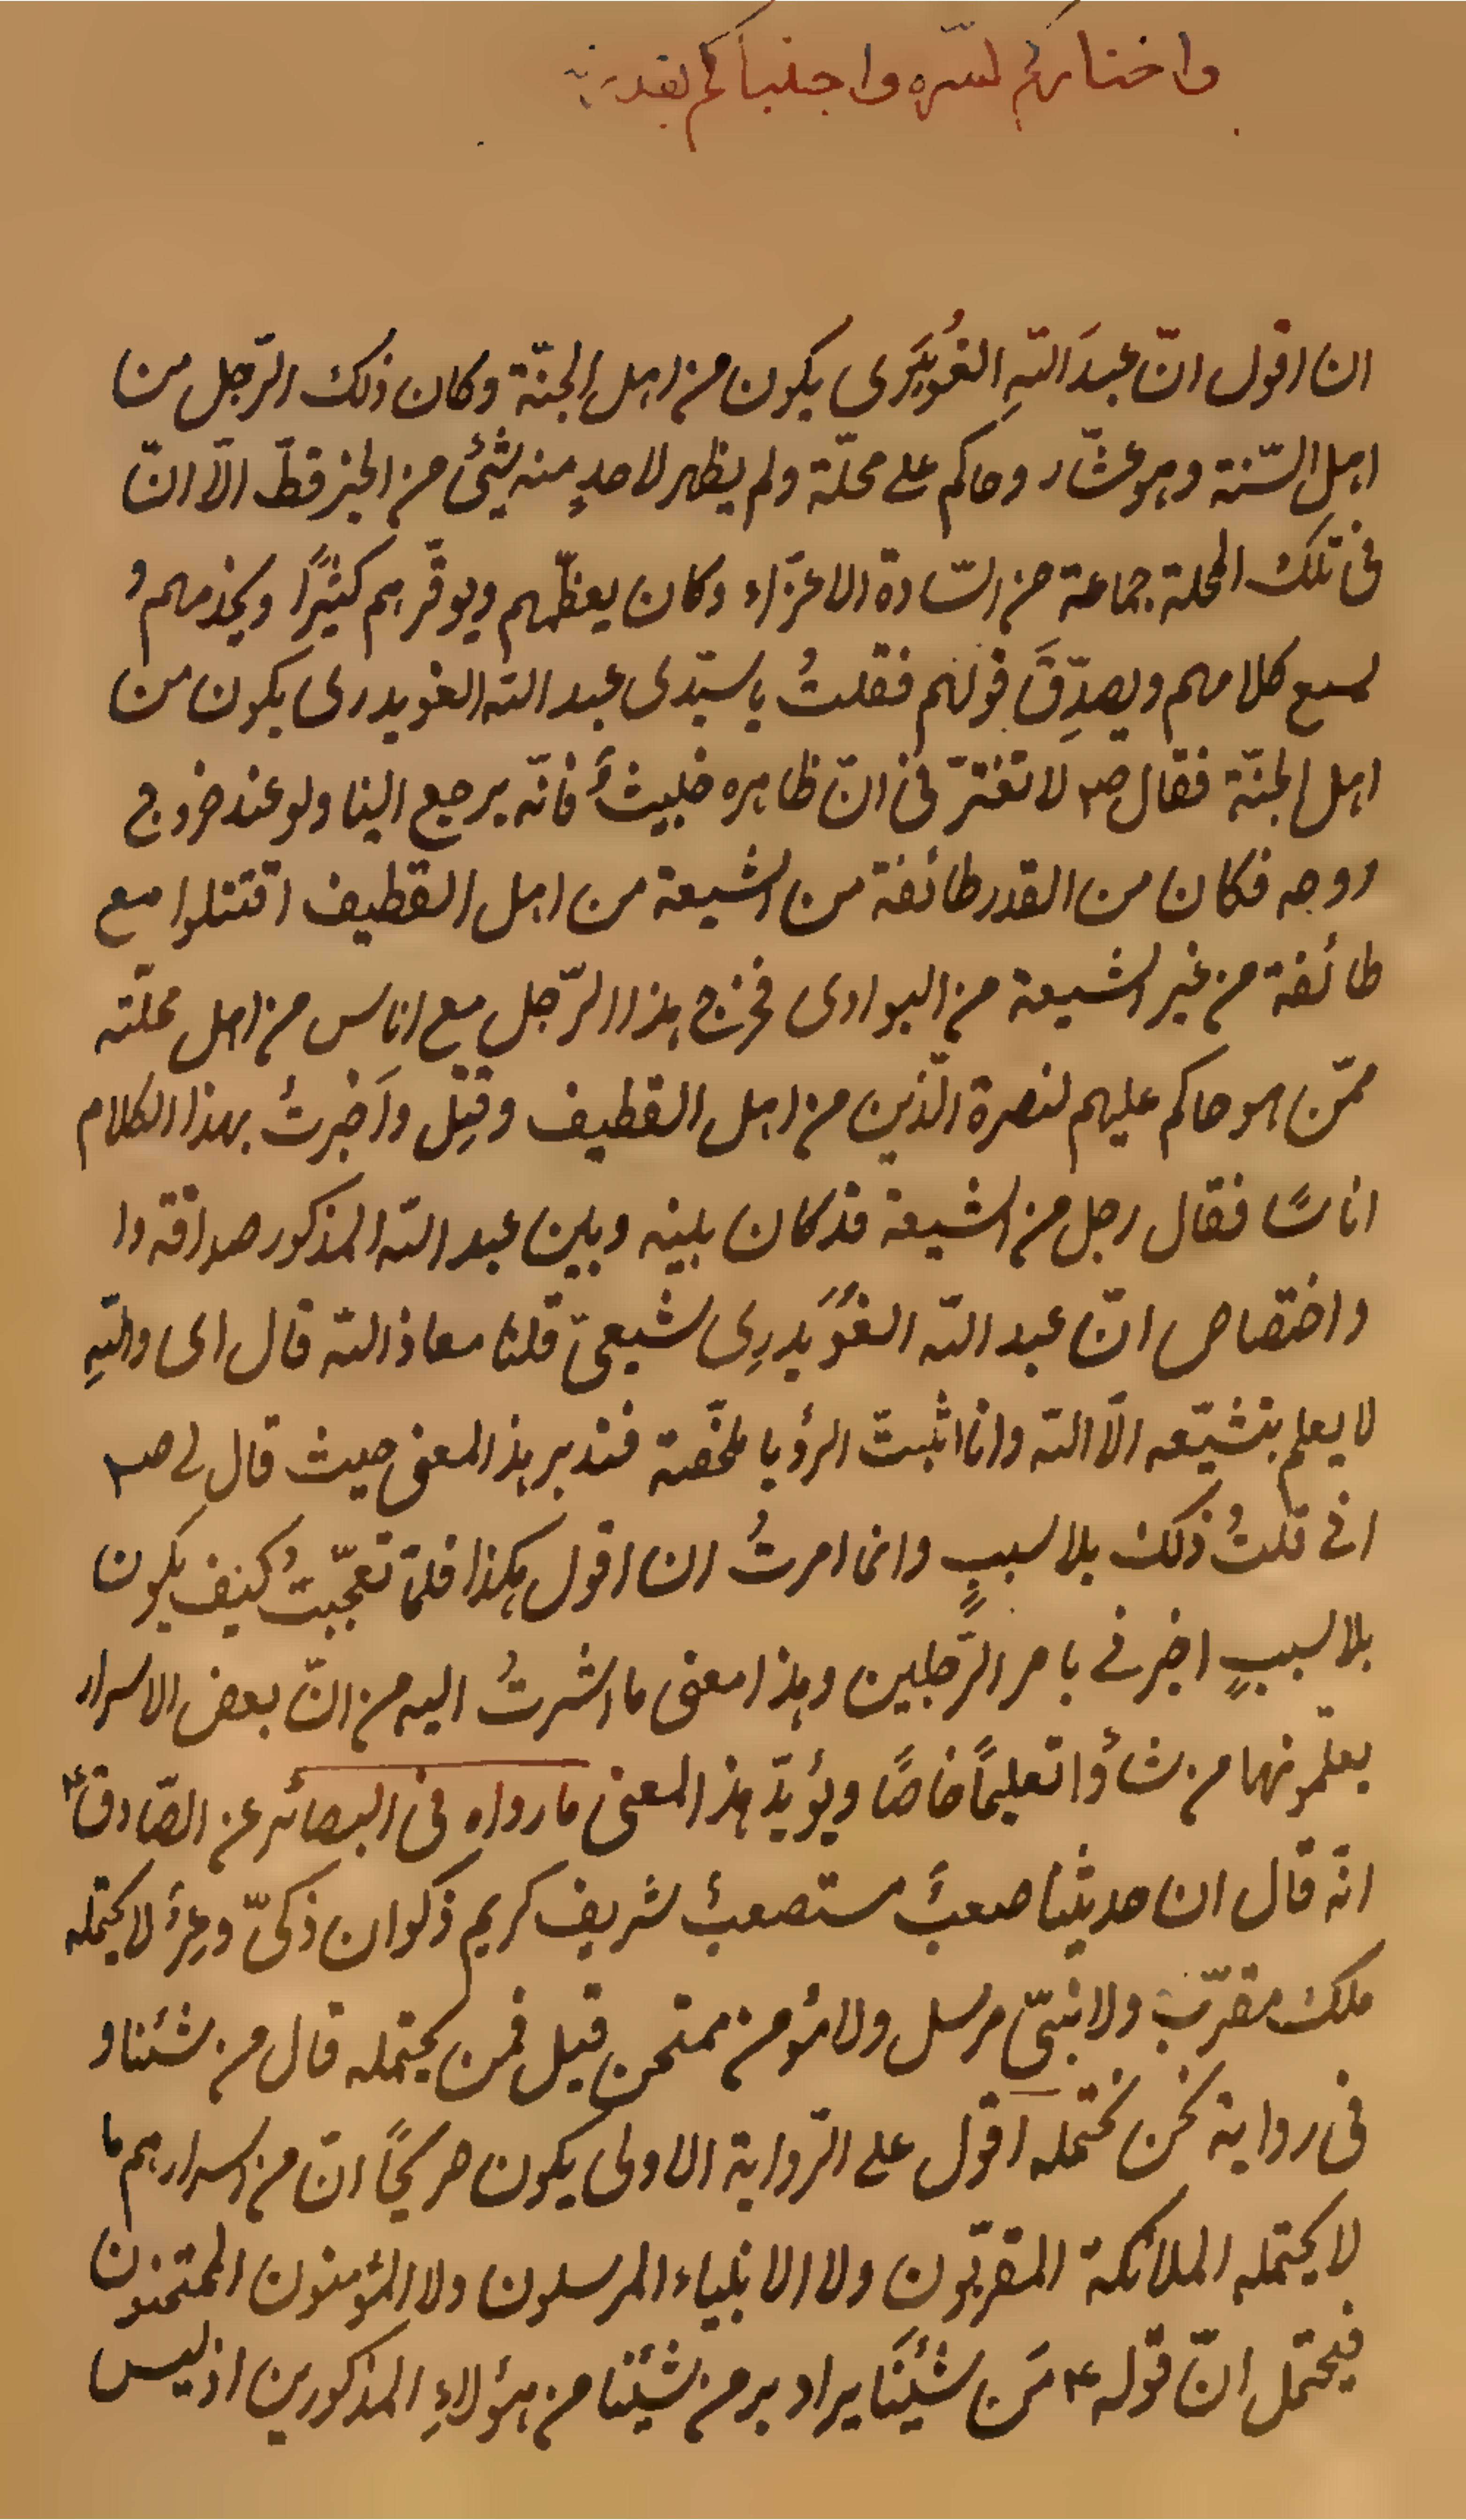 واختاركم لسرّه واجتباكم بقدرته
ان اقول انّ عبدَ اللّهِ الغُوَيْدَرى يكون من اهل الجنّة وكان ذلك الرّجل من
اهل السّنة وهو عشّار وحاكم على محلّة ولم يظهر لاحدٍ منه شئ من الخير قطّ الّا انّ
فى تلك المحلة جماعة من السّادة الاعزّاء وكان يعظّمهم ويوقّرهم كثيرًا ويخدمهم و
يسمع كلامهم ويصدِّقَ قولهم فقلتُ يا سيّدى عبد اللّه الغويدرى يكون من
اهل الجنّة فقال ص لا تغترّ فى انّ ظاهره خبيثٌ فانّه يرجع الينا ولو عند خروج
روحه فكان من القدر طائفة من الشيعة من اهل القطيف اقتتلوا مع
طائفة من غير الشيعة من البوادى فخرج هذا الرّجل مع اناس من اهل محلّته
ممّن هو حاكم عليهم لنصرة الّذين من اهل القطيف وقُتِل واَخبرتُ بهذا الكلام
اناسًا فقال رجل من الشيعة قد كان بينه وبين عبد اللّه المذكور صداقة وا
واختصاص انّ عبد اللّه الغُوَيدرِى شيعىّ قلنا معاذ اللّه قال اى واللّهِ
لا يعلم بتشيّعه الّا اللّه وانا اثبت الرؤيا ملخّصة فتدبر هذا المعنى حيث قال لى ص
انى قلتُ ذلك بلا سببٍ وانما امرتُ ان اقول هكذا فلمّا تعجّبتُ كيف يكون
بلا سببٍ اخبرنى بامر الرّجلين وهذا معنى ما اشرتُ اليه من انّ بعض الاسرار
يعلّمونها من شاؤا تعليمًا خاصًا ويؤيّد هذا المعنى ما رواه فى البصائر عن الصّادق ع
انّه قال ان حديثنا صعبٌ مستصعبٌ شريف كريم ذكوان ذكىّ وعرٌ لا يحتمله
ملك مقرّب ولا نبىّ مرسل ولا مؤمن ممتحن قيل فمن يحتمله قال من شئنا و
فى رواية نحن نحتمله اقول على الرّواية الاولى يكون صريحًا انّ من اسرارهم ما
لا يحتمله الملائكة المقرّبون ولا الانبياء المرسلون ولا المؤمنون الممتحنون
فيحتمل انّ قوله ع مَن شِئْنَا يراد به من شئنا من هؤلاءِ المذكورين اذ ليس